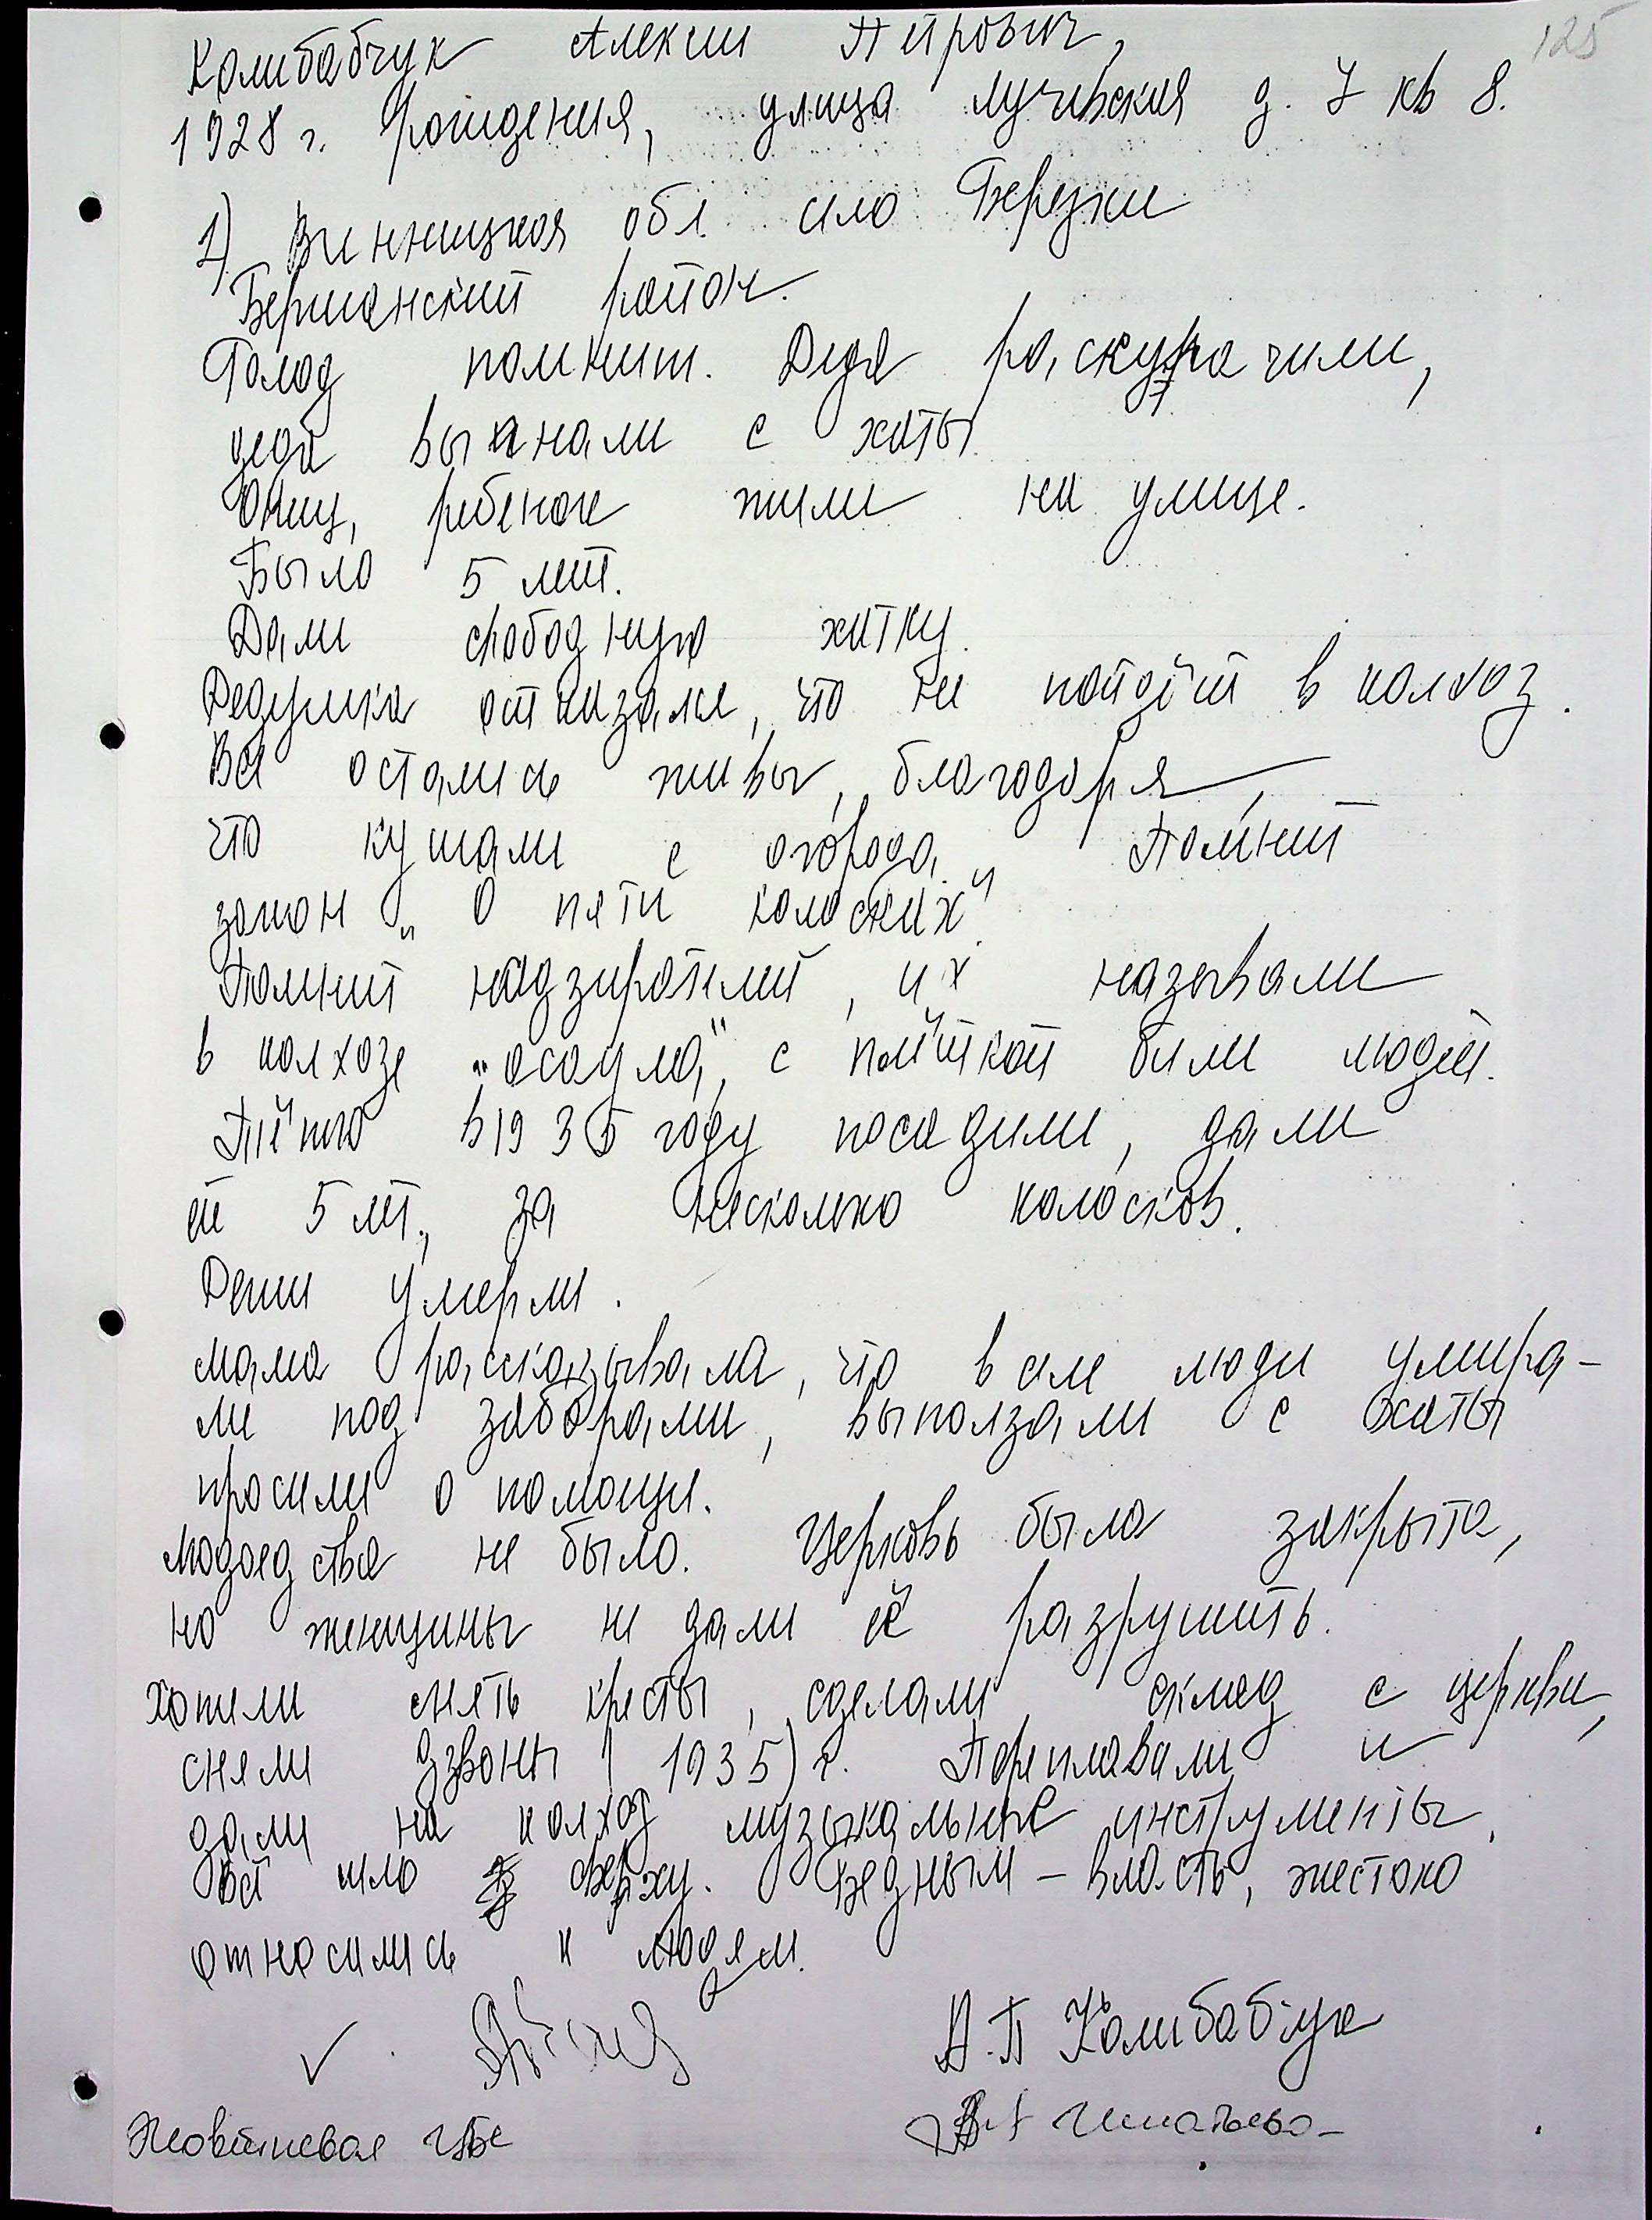 125
Колибабчук Алексей Петрович,
1928 г. рождения, улица Лучевская д. 7 кв 8.
1) Винницкая обл. село Березки
Бершанский район.
Голод помнит. Деда раскулачили,
деда выгнали с хаты
Отец, ребенок жили на улице.
Было 5 лет.
Дали свободную хатку.
Дедушка отказался, что не пойдёт в колхоз.
Все остались живы, благодаря,
что кушали с огорода. Помнит
закон „О пяти колосках".
Помнит надзирателей, их называли
в колхозе „осаула", с плёткой били людей.
Тётю в 1935 году посадили, дали
ей 5 лет, за несколько колосков.
Дети умерли.
Мама рассказывала, что в селе люди умира-
ли под заборами, выползали с хаты
просили о помощи.
Людоедства не было. Церковь была закрыта,
но женщины не дали её разрушить.
Хотели снять кресты, сделали склад с церкви,
сняли дзвоны (1935) г. Переплавили и
дали на колхоз музыкальные инструменты.
Всё шло сверху. Бедным – власть, жестоко
относились к людям.
А.П Колибабчук
Жовтневая